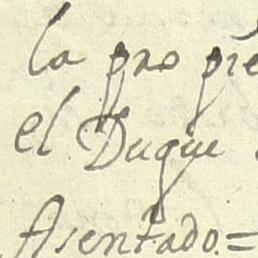 la pro pie
el Duque
Asentado =